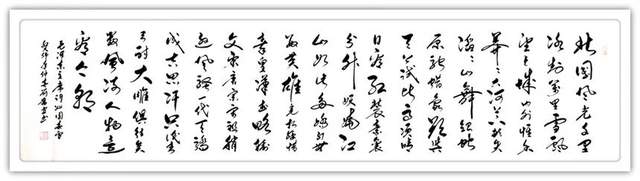 北国风光千里
冰封万里雪飘
望长城内外惟余
莽莽大河上下顿失
滔滔山舞银蛇
原驰蜡象欲与
天公试比高须晴
日看红装素裹
分外妖娆江
山如此多娇引无
数英雄竞折腰惜
秦皇汉武略输
文采唐宗宋祖稍
逊风骚一代天骄
成吉思汗只识弯
弓射大雕俱往矣
数风流人物还
看今朝
毛泽东主席词沁园春雪